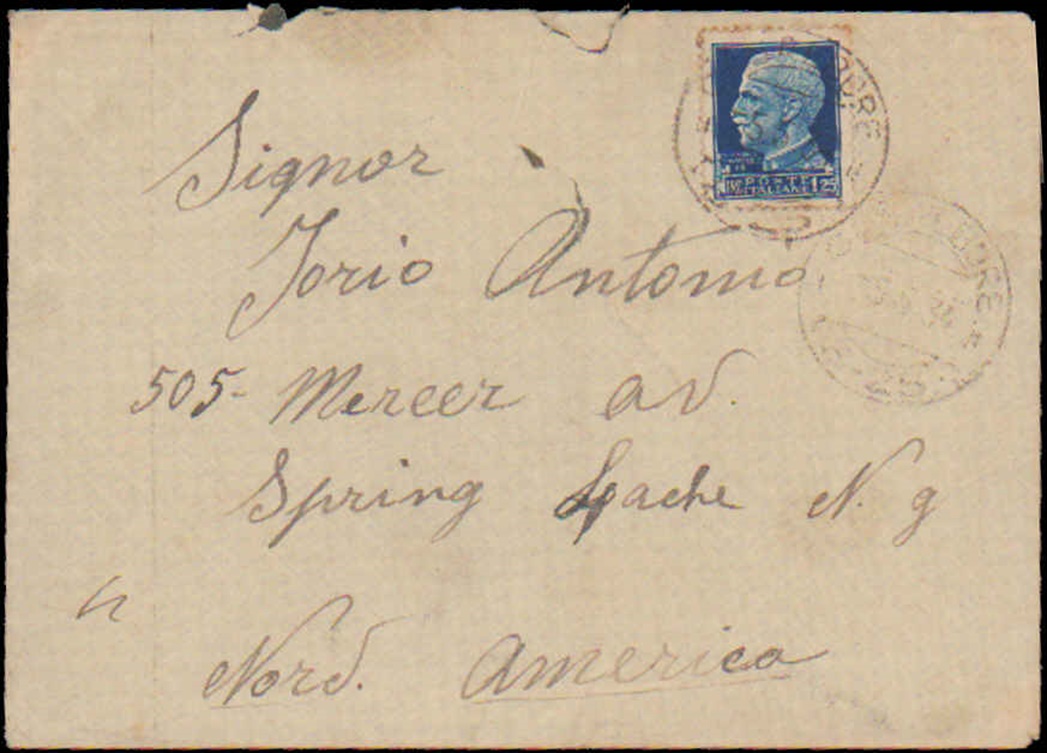 POSTE
ITALIANE
1.25
Signor
Iorio Antonio
505- Mercer av.
Spring Lache N. g
Nord. America